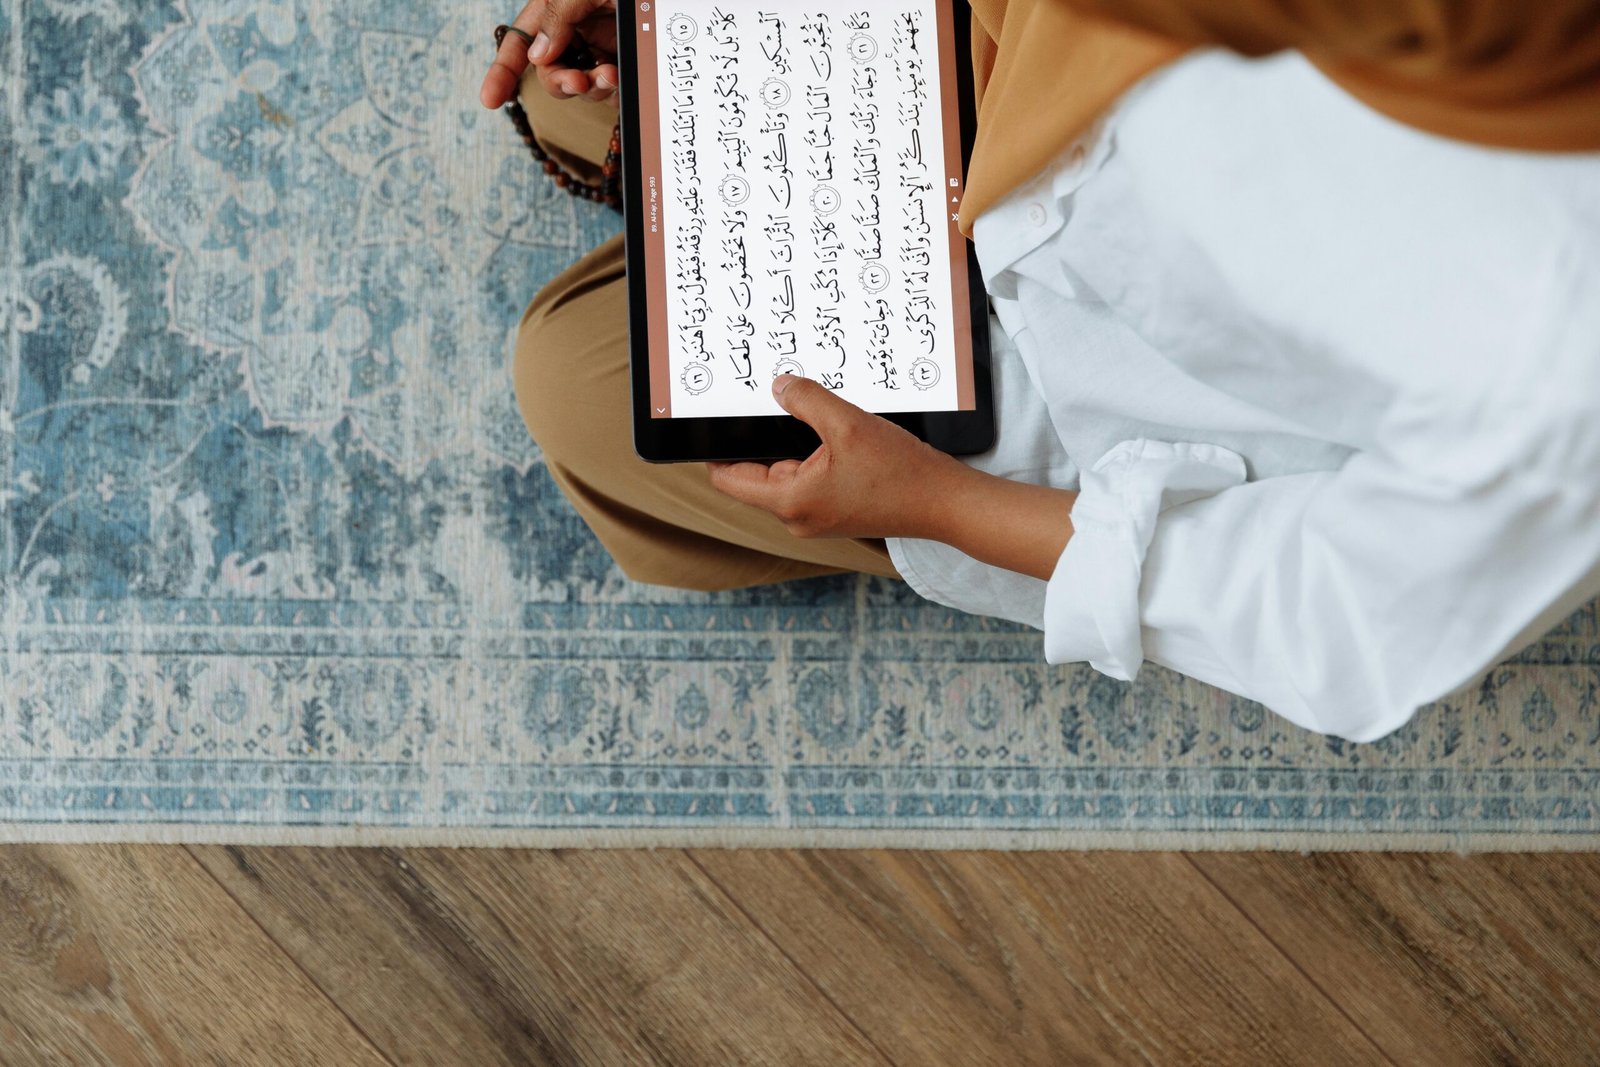 89. Al-Fajr, Page 593
١٥ وَأَمَّآ إِذَا مَا ٱبْتَلَىٰهُ فَقَدَرَ عَلَيْهِ رِزْقَهُۥ فَيَقُولُ رَبِّىٓ أَهَٰنَنِ ١٦
كَلَّا ۖ بَل لَّا تُكْرِمُونَ ٱلْيَتِيمَ ١٧ وَلَا تَحَٰٓضُّونَ عَلَىٰ طَعَامِ
ٱلْمِسْكِينِ ١٨ وَتَأْكُلُونَ ٱلتُّرَاثَ أَكْلًا لَّمًّا
وَتُحِبُّونَ ٱلْمَالَ حُبًّا جَمًّا ٢٠ كَلَّآ إِذَا دُكَّتِ ٱلْأَرْضُ دَكًّا
دَكًّا ٢١ وَجَآءَ رَبُّكَ وَٱلْمَلَكُ صَفًّا صَفًّا ٢٢ وَجِا۟ىٓءَ يَوْمَئِذٍۭ
بِجَهَنَّمَ ۚ يَوْمَئِذٍ يَتَذَكَّرُ ٱلْإِنسَٰنُ وَأَنَّىٰ لَهُ ٱلذِّكْرَىٰ ٢٣